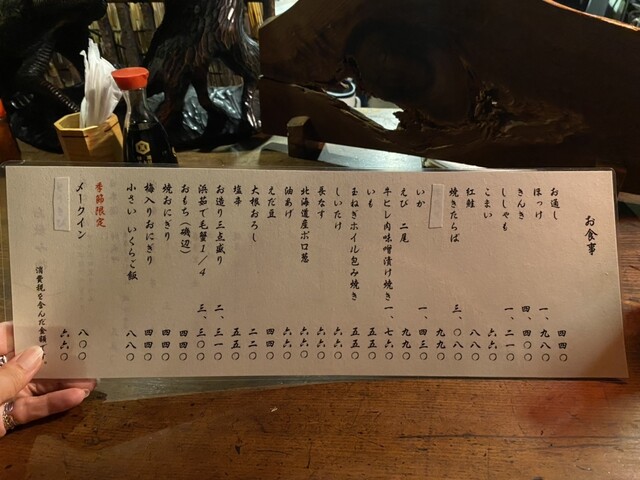 お食事
お通し 四四〇
ほっけ 一、九八〇
きんき 四、四〇〇
ししゃも 一、二一〇
こまい 六六〇
紅鮭 八八〇
焼きたらば 三、〇八〇
九九〇
いか 一、四三〇
えび 二尾 九九〇
牛ヒレ肉味噌漬け焼き 一、七六〇
いも 五五〇
玉ねぎホイル包み焼き 五五〇
しいたけ 六六〇
長なす 六六〇
北海道産ポロ葱 六六〇
油あげ 六六〇
えだ豆 四四〇
大根おろし 二二〇
塩辛 五五〇
お造り三点盛り 二、三一〇
浜茹で毛蟹1/4 三、三〇〇
おもち(磯辺) 四四〇
焼おにぎり 四四〇
梅入りおにぎり 四四〇
小さい いくらご飯 八八〇
季節限定
メークイン 八〇〇
六六〇
消費税を含んだ金額です。